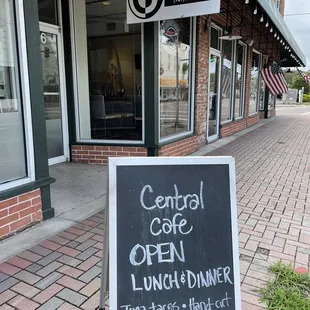 Central
Cafe
OPEN
LUNCH & DINNER
Tuna tacos • Hand-cut